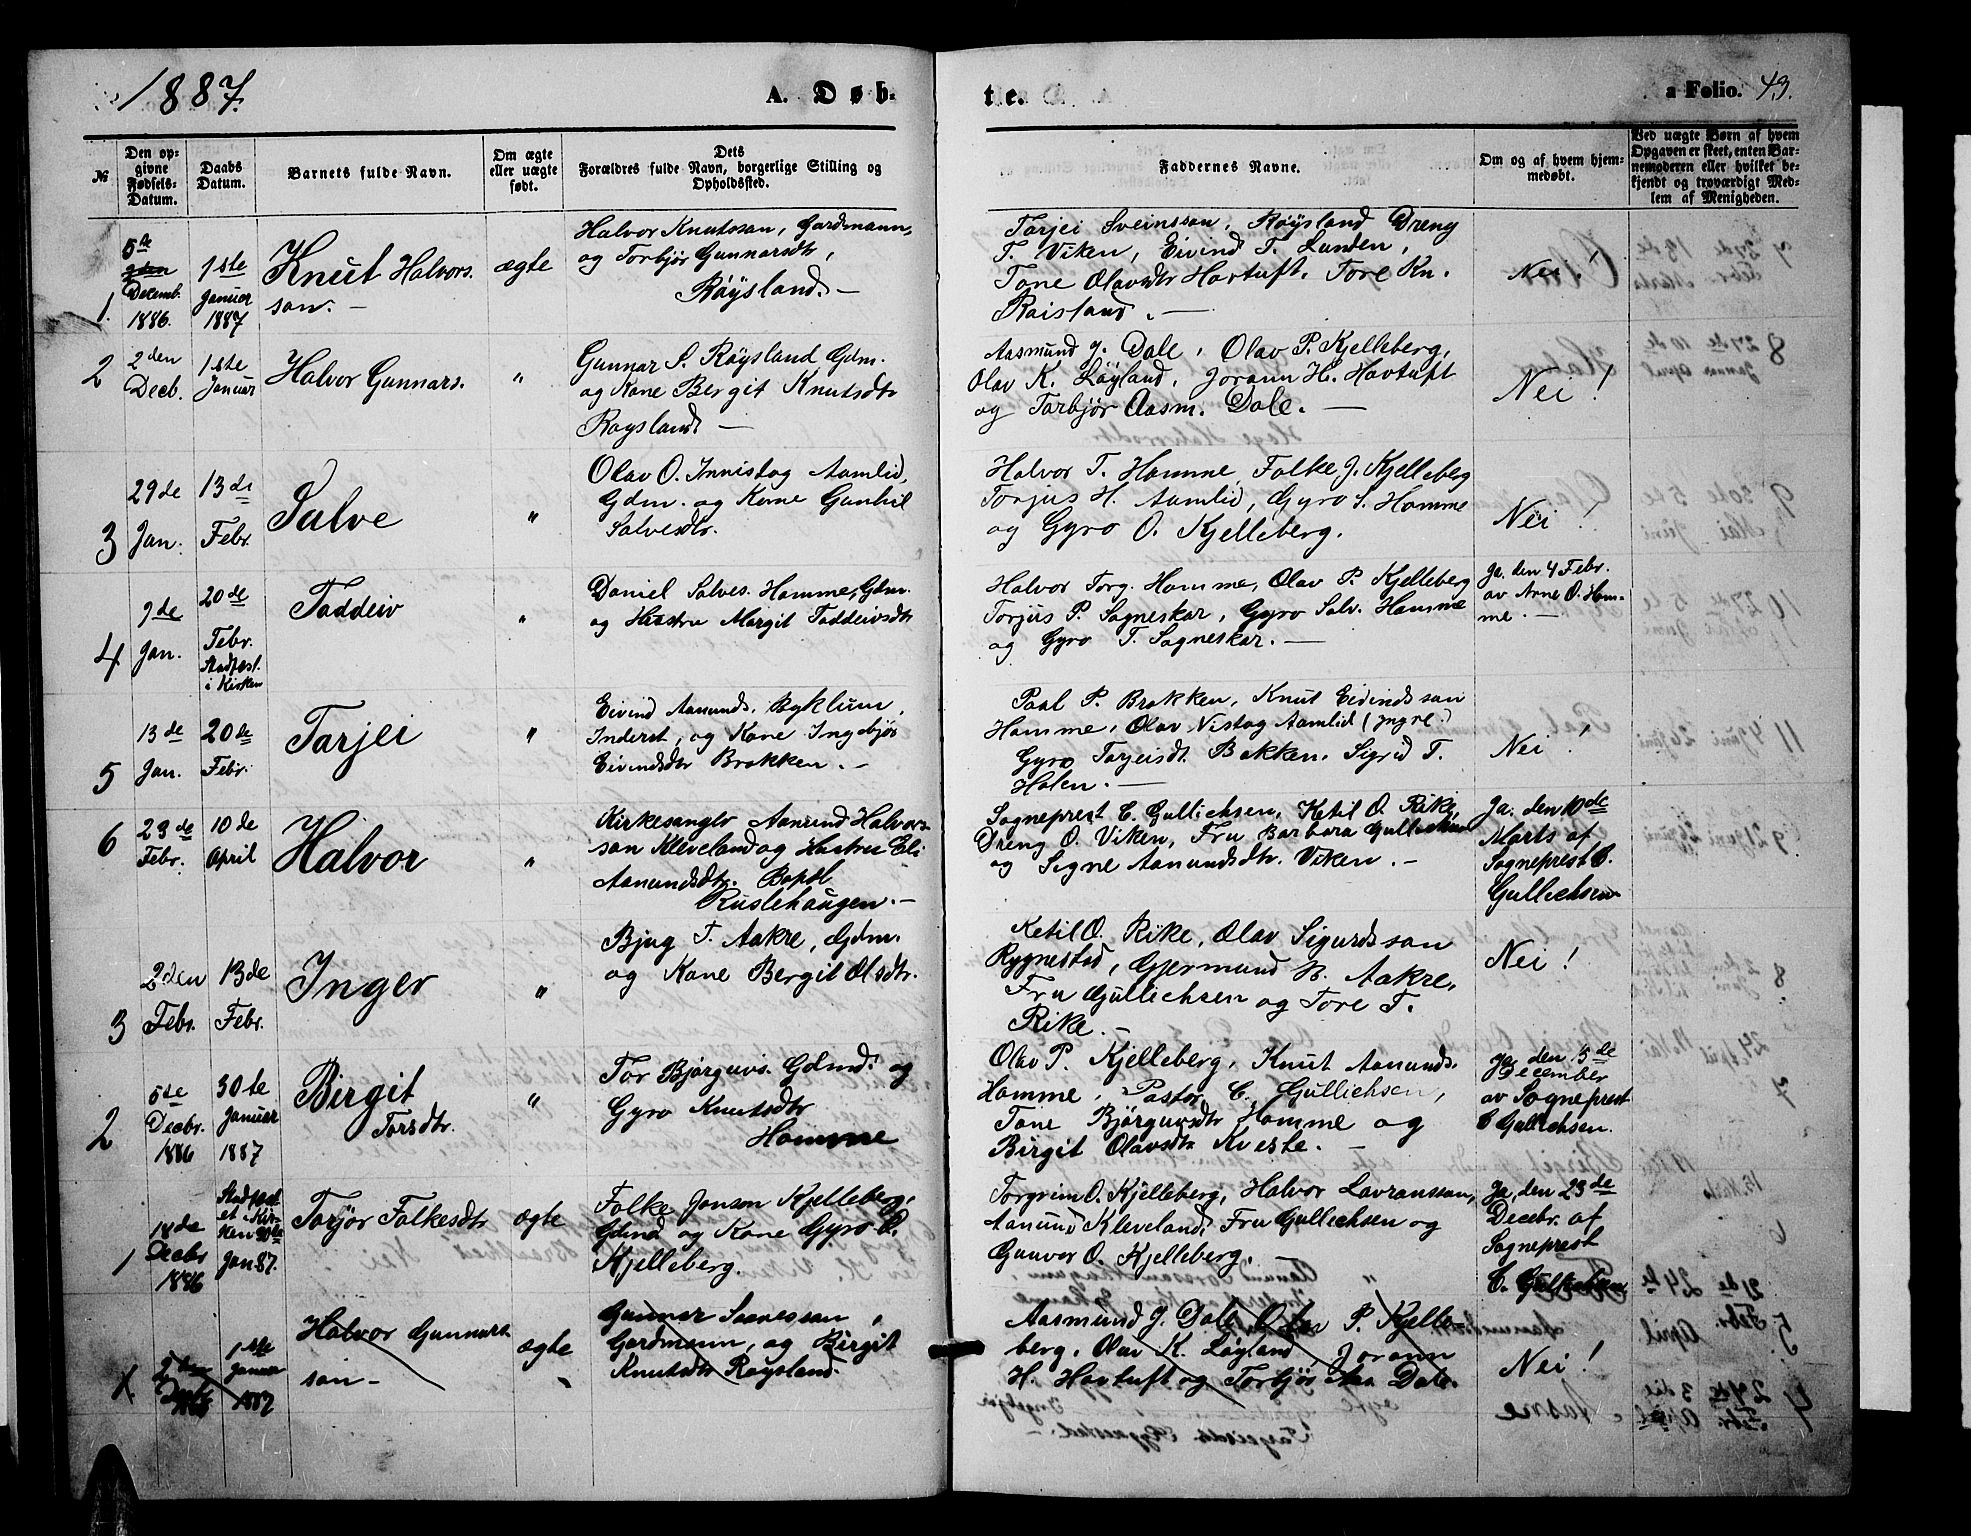 1887.
A. Døb-
te.
a Folio. 43.
№
Den op-
givne
Fødsels-
Datum.
Daabs
Datum.
Barnets fulde Navn.
Om ægte
eller uægte
født.
Dets
Forældres fulde Navn, borgerlige Stilling og
Opholdssted.
Faddernes Navne.
Om og af hvem hjem-
medøbt.
Ved uægte Børn af hvem
Opgaven er skeet, enten Bar-
nemoderen eller hvilket be-
kjendt og troværdigt Med-
lem af Menigheden.
1.
5te
Decemb.
1886.
1ste
Januar
1887
Knut Halvors.
son.
ægte
Halvor Knutsson, Gardmann,
og Torbjør Gunnarsdtr,
Røysland.
Tarjei Sveinsson, Røysland Dreng
T. Viken, Eivind T. Lunden,
Tone Olavsdtr Hovtuft. Tore Kn.
Raisland.
Nei!
2
2den
Decb.
1ste
Januar
Halvor Gunnars.
"
Gunnar S. Røysland Gdm.
og Kone Bergit Knutsdtr
Røysland.
Aasmund J. Dale, Olav P. Kjelleberg,
Olav K. Løyland, Jorann H. Hovtuft
og Torbjør Aasm. Dale.
Nei!
3
29de
Jan.
13de
Febr.
Salve
"
Olav O. Innistog Aamlid,
Gdm. og Kone Gunhil
Salvesdtr.
Halvor T. Homme, Folke J. Kjelleberg
Torjus H. Aamlid, Gyro S. Homme
og Gyro O. Kjelleberg.
Nei!
4
9de
Jan.
20de
Febr.
Stadfæst.
i Kirken
Taddeiv
"
Daniel Salves. Homme, Gdm.
og Hustru Margit Taddeivsdtr
Halvor Torg. Homme, Olav P. Kjelleberg
Torjus P. Sagneskar, Gyro Salv. Homme
og Gyro T. Sagneskar.
Ja, den 4 Febr.
av Arne O. Hom-
me.
5
13de
Jan.
20de
Febr.
Tarjei
"
Eivind Aanunds. Byklum,
Inderst, og Kone Ingebjør
Eivindsdtr Brokken.
Paal P. Brokken, Knut Eivindsson
Homme, Olav Nistog Aamlid (yngre)
Gyro Tarjeisdt. Bakken, Sigrid T.
Holen.
Nei!
6
23de
Febr.
10de
April
Halvor
"
Kirkesanger Aanund Halvors-
son Kleveland og Hustru Eli
Aanundsdtr. Bopæl
Rustehaugen.
Sogneprest C. Gullichsen, Ketil O. Rike,
Dreng O. Viken, Fru Barbara Gullichsen
og Signe Aanundsdtr. Viken.
Ja, den 10de
Marts af
Sogneprest C.
Gullichsen
3
2den
Febr.
13de
Febr.
Inger
"
Bjug T. Aakre, Gdm.
og Kone Bergit Olsdtr.
Ketil O. Rike, Olav Sigurdsson
Rygnestad, Gjermund B. Aakre,
Fru Gullichsen og Tore T.
Rike.
Nei!
2
5te
Decbr.
1886
30te
Januar
1887
Birgit
Torsdtr.
"
Tor Bjørguvs. Gdmd. og
Gyro Knutsdtr
Homme
Olav P. Kjelleberg, Knut Aanunds.
Homme, Pastor C. Gullichsen,
Tone Bjørguvsdtr Homme og
Birgit Olavsdtr Kveste.
Ja, den 5de
December
av Sogneprest
C Gullichsen.
1
18de
Decbr
1886
Stadfæst
et i Kir-
ken 30te
Jan 87.
Torjør Folkesdtr
ægte
Folke Jonson Kjelleberg,
Gdmd og Kone Gyro O.
Kjelleberg.
Torgrim O. Kjelleberg, Halvor Lavransson,
Aanund Kleveland, Fru Gullichsen og
Gunvor O. Kjelleberg.
Ja, den 23de
Decbr. af
Sogneprest
C. Gullichsen
1
2den
1ste
Januar
1887
Halvor Gunnars
son
ægte
Gunnar
Gardmann, og Birgit
Knutsdtr Røysland.
Aasmund J. Dale, Olav P. Kjelle-
berg, Olav K. Løyland, Jorann
H. Hovtuft og Torbjør Aas Dale.
Nei!